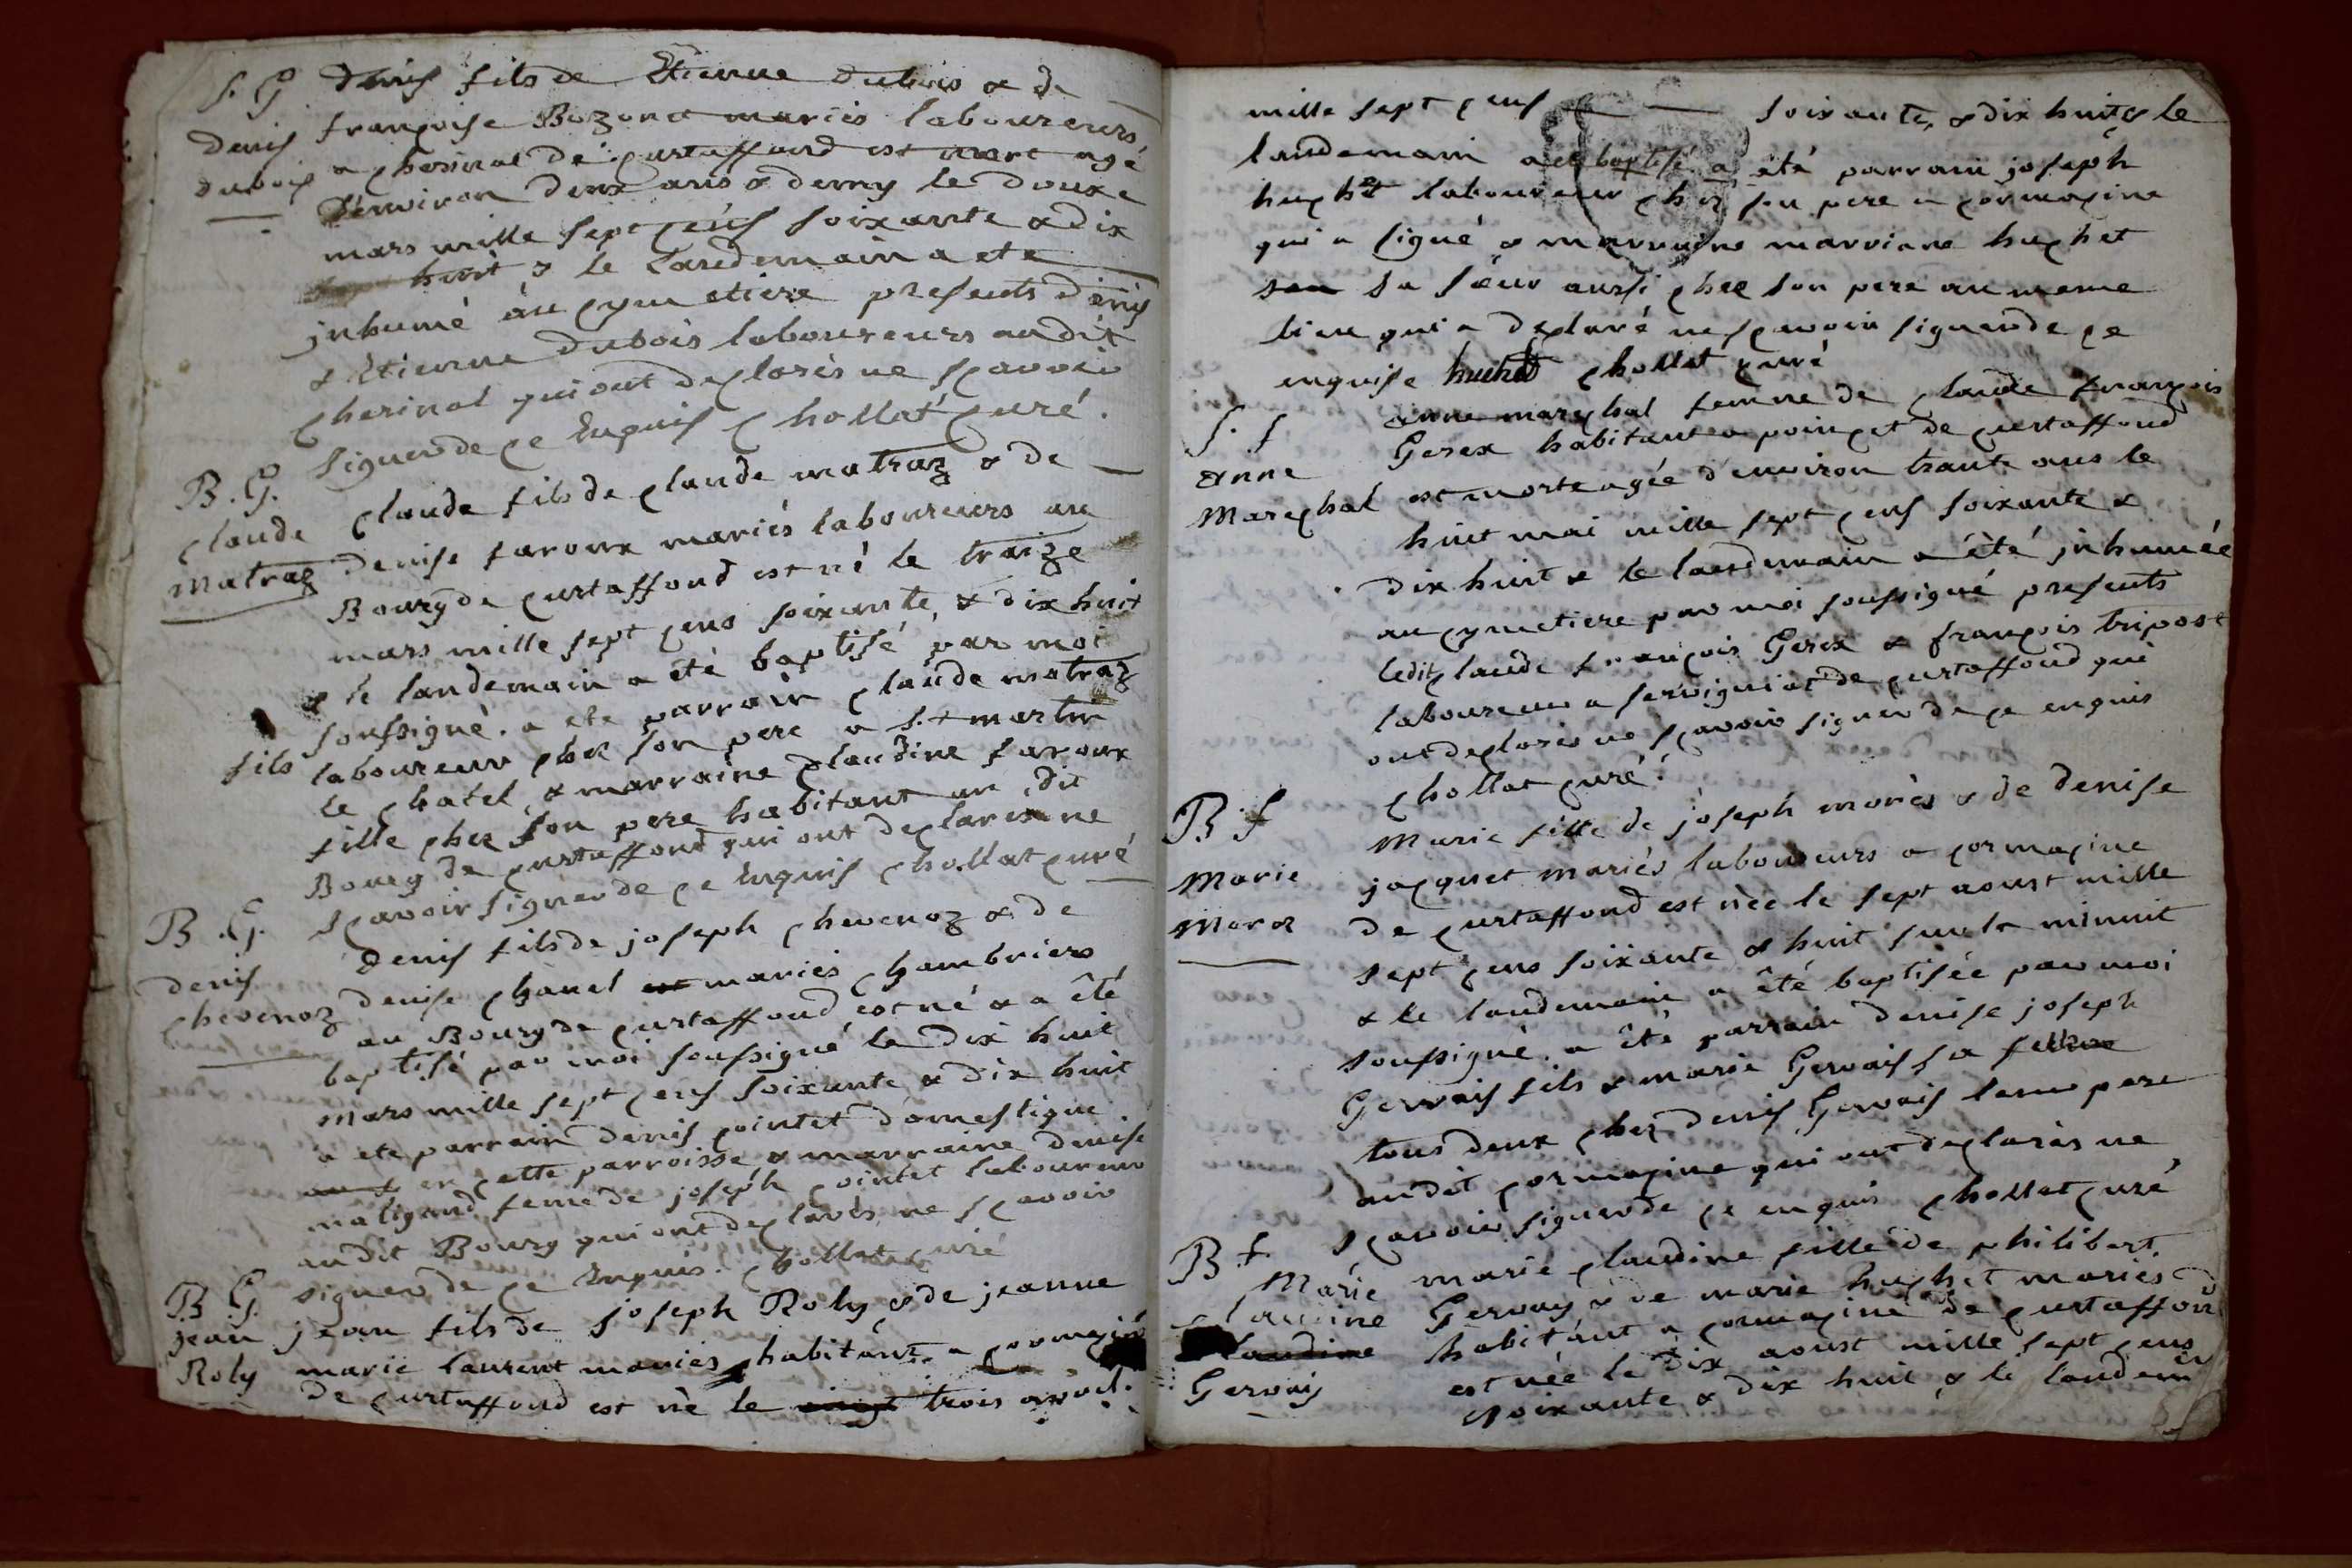 S. G denis fils de Etienne dubois & de
denis françoise Bozonet mariés laboureurs
dubois a cherinal de curtaffond est mort agé
d'environ deux ans & demy le douze
mars mille sept cens soixante & dix
huit & le landemain a ete
inhumé au cymetiere presents denis
& Etienne dubois laboureurs audit
cherinal qui ont declarés ne scavoir
signer de ce Enquis chollat curé.
B. G.
claude claude fils de claude matraz & de
matraz denise faroux mariés laboureurs au
Bourg de curtaffond est né le traize
mars mille sept cens soixante & dix huit
& le landemain a été baptisé par moi
soussigné. a ete parrain claude matraz
fils laboureur chez son pere a st martin
le chatel, & marraine claudine faroux
fille chez son pere habitant au dit
Bourg de curtaffond qui ont declares ne
scavoir signer de ce Enquis chollat curé
B. G.
denis denis fils de joseph chevenoz & de
chevenoz denise chanel est mariés chambriers
au Bourg de curtaffond est né & a été
baptisé par moi soussigné le dix huit
mars mille sept cens soixante & dix huit
a ete parrain denis cointet domestique
en cette parroisse & marraine denise
matignd feme de joseph cointet laboureur
audit Bourg qui ont declarés ne scavoir
signer de ce Enquis. chollat curé
B. G.
jean jean fils de joseph Roly & de jeanne
Roly marie laurent mariés habitant a cormagin
de curtaffond est né le vingt trois avril
mille sept cens soixante & dix huit & le
landemain a ete baptisé a été parrain joseph
huchet laboureur chez son pere a cormagine
qui a signé & marraine marriane huchet
son sa sœur aussi chez son pere au meme
lieu qui a declaré ne scavoir signer de ce
enquise huchet chollat curé
S. f anne marechal femme de claude françois
anne Gerex habitant a poincet de curtaffond
Marechal est morte agée d'environ trante ans le
huit mai mille sept cens soixante &
dix huit & le landemain a été inhumée
au cymetiere par moi soussigné presents
ledit claude françois Gerex & françois tripost
laboureur a servigniat de curtaffond qui
ont declarés ne scavoir signer de ce enquis
chollat curé.
B. f marie fille de joseph morés & de denise
Marie jacquet mariés laboureurs a cormagine
Morex de curtaffond est née le sept aoust mille
sept cens soixante & huit sur le minuit
& le landemain a été baptisée par moi
soussigné. a été parrain denise joseph
Gervais fils & marie Gervais sa
tous deux chez denis Gervais leur pere
audit cormagine qui ont declarés ne
scavoir signer de ce enquis chollat curé
B. f.
Marie marie claudine fille de philibert
claudine Gervay & de marie huchet mariés
claudine habitant a cormagine de curtaffond
Gervais est née le dix aoust mille sept cens
soixante & dix huit & le landemain